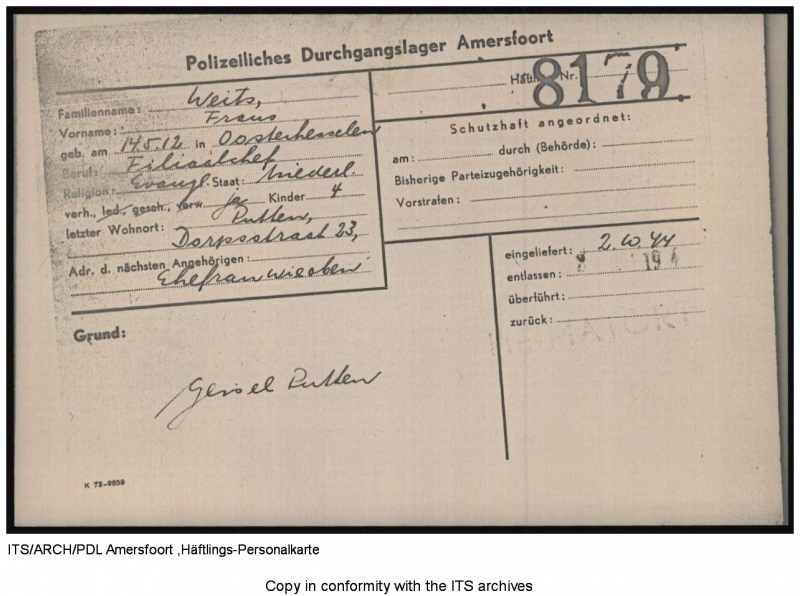 Polizeiliches Durchgangslager Amersfoort
Häftl. Nr. 8179
Familienname: Weits,
Vorname: Frans
geb. am 14.5.12 in Oosterhesselen
Beruf: Filiaalchef
Religion: Evangl. Staat: Niederl.
verh., led., gesch., verw. ja Kinder 4
letzter Wohnort: Putten,
Dorpsstraat 23,
Adr. d. nächsten Angehörigen:
Ehefrau wie oben
Schutzhaft angeordnet:
am: durch (Behörde):
Bisherige Parteizugehörigkeit:
Vorstrafen:
eingeliefert: 2.10.44
entlassen: 194
überführt:
zurück:
Grund:
Geisel Putten
K 73-9859
ITS/ARCH/PDL Amersfoort ,Häftlings-Personalkarte
Copy in conformity with the ITS archives